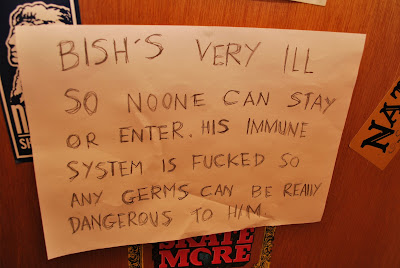 BISH'S VERY ILL
SO NOONE CAN STAY
OR ENTER. HIS IMMUNE
SYSTEM IS FUCKED SO
ANY GERMS CAN BE REALLY
DANGEROUS TO HIM
SKATE
MORE
NAT
SH